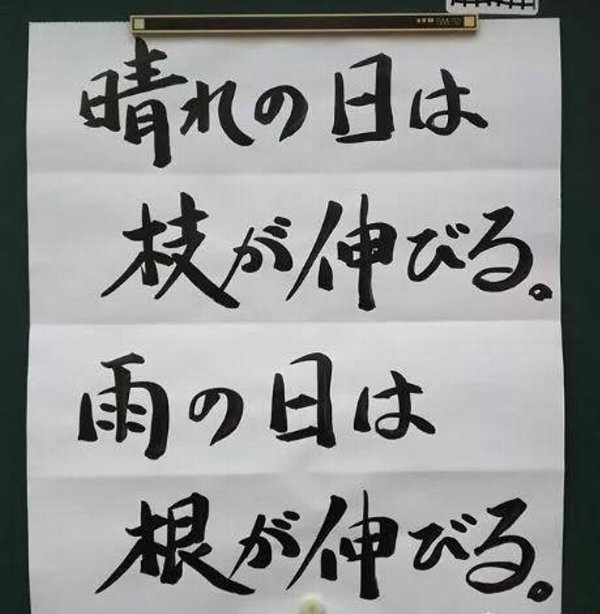 晴れの日は
枝が伸びる。
雨の日は
根が伸びる。